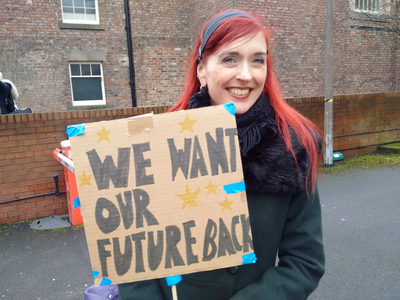 WE WANT
OUR
FUTURE BACK